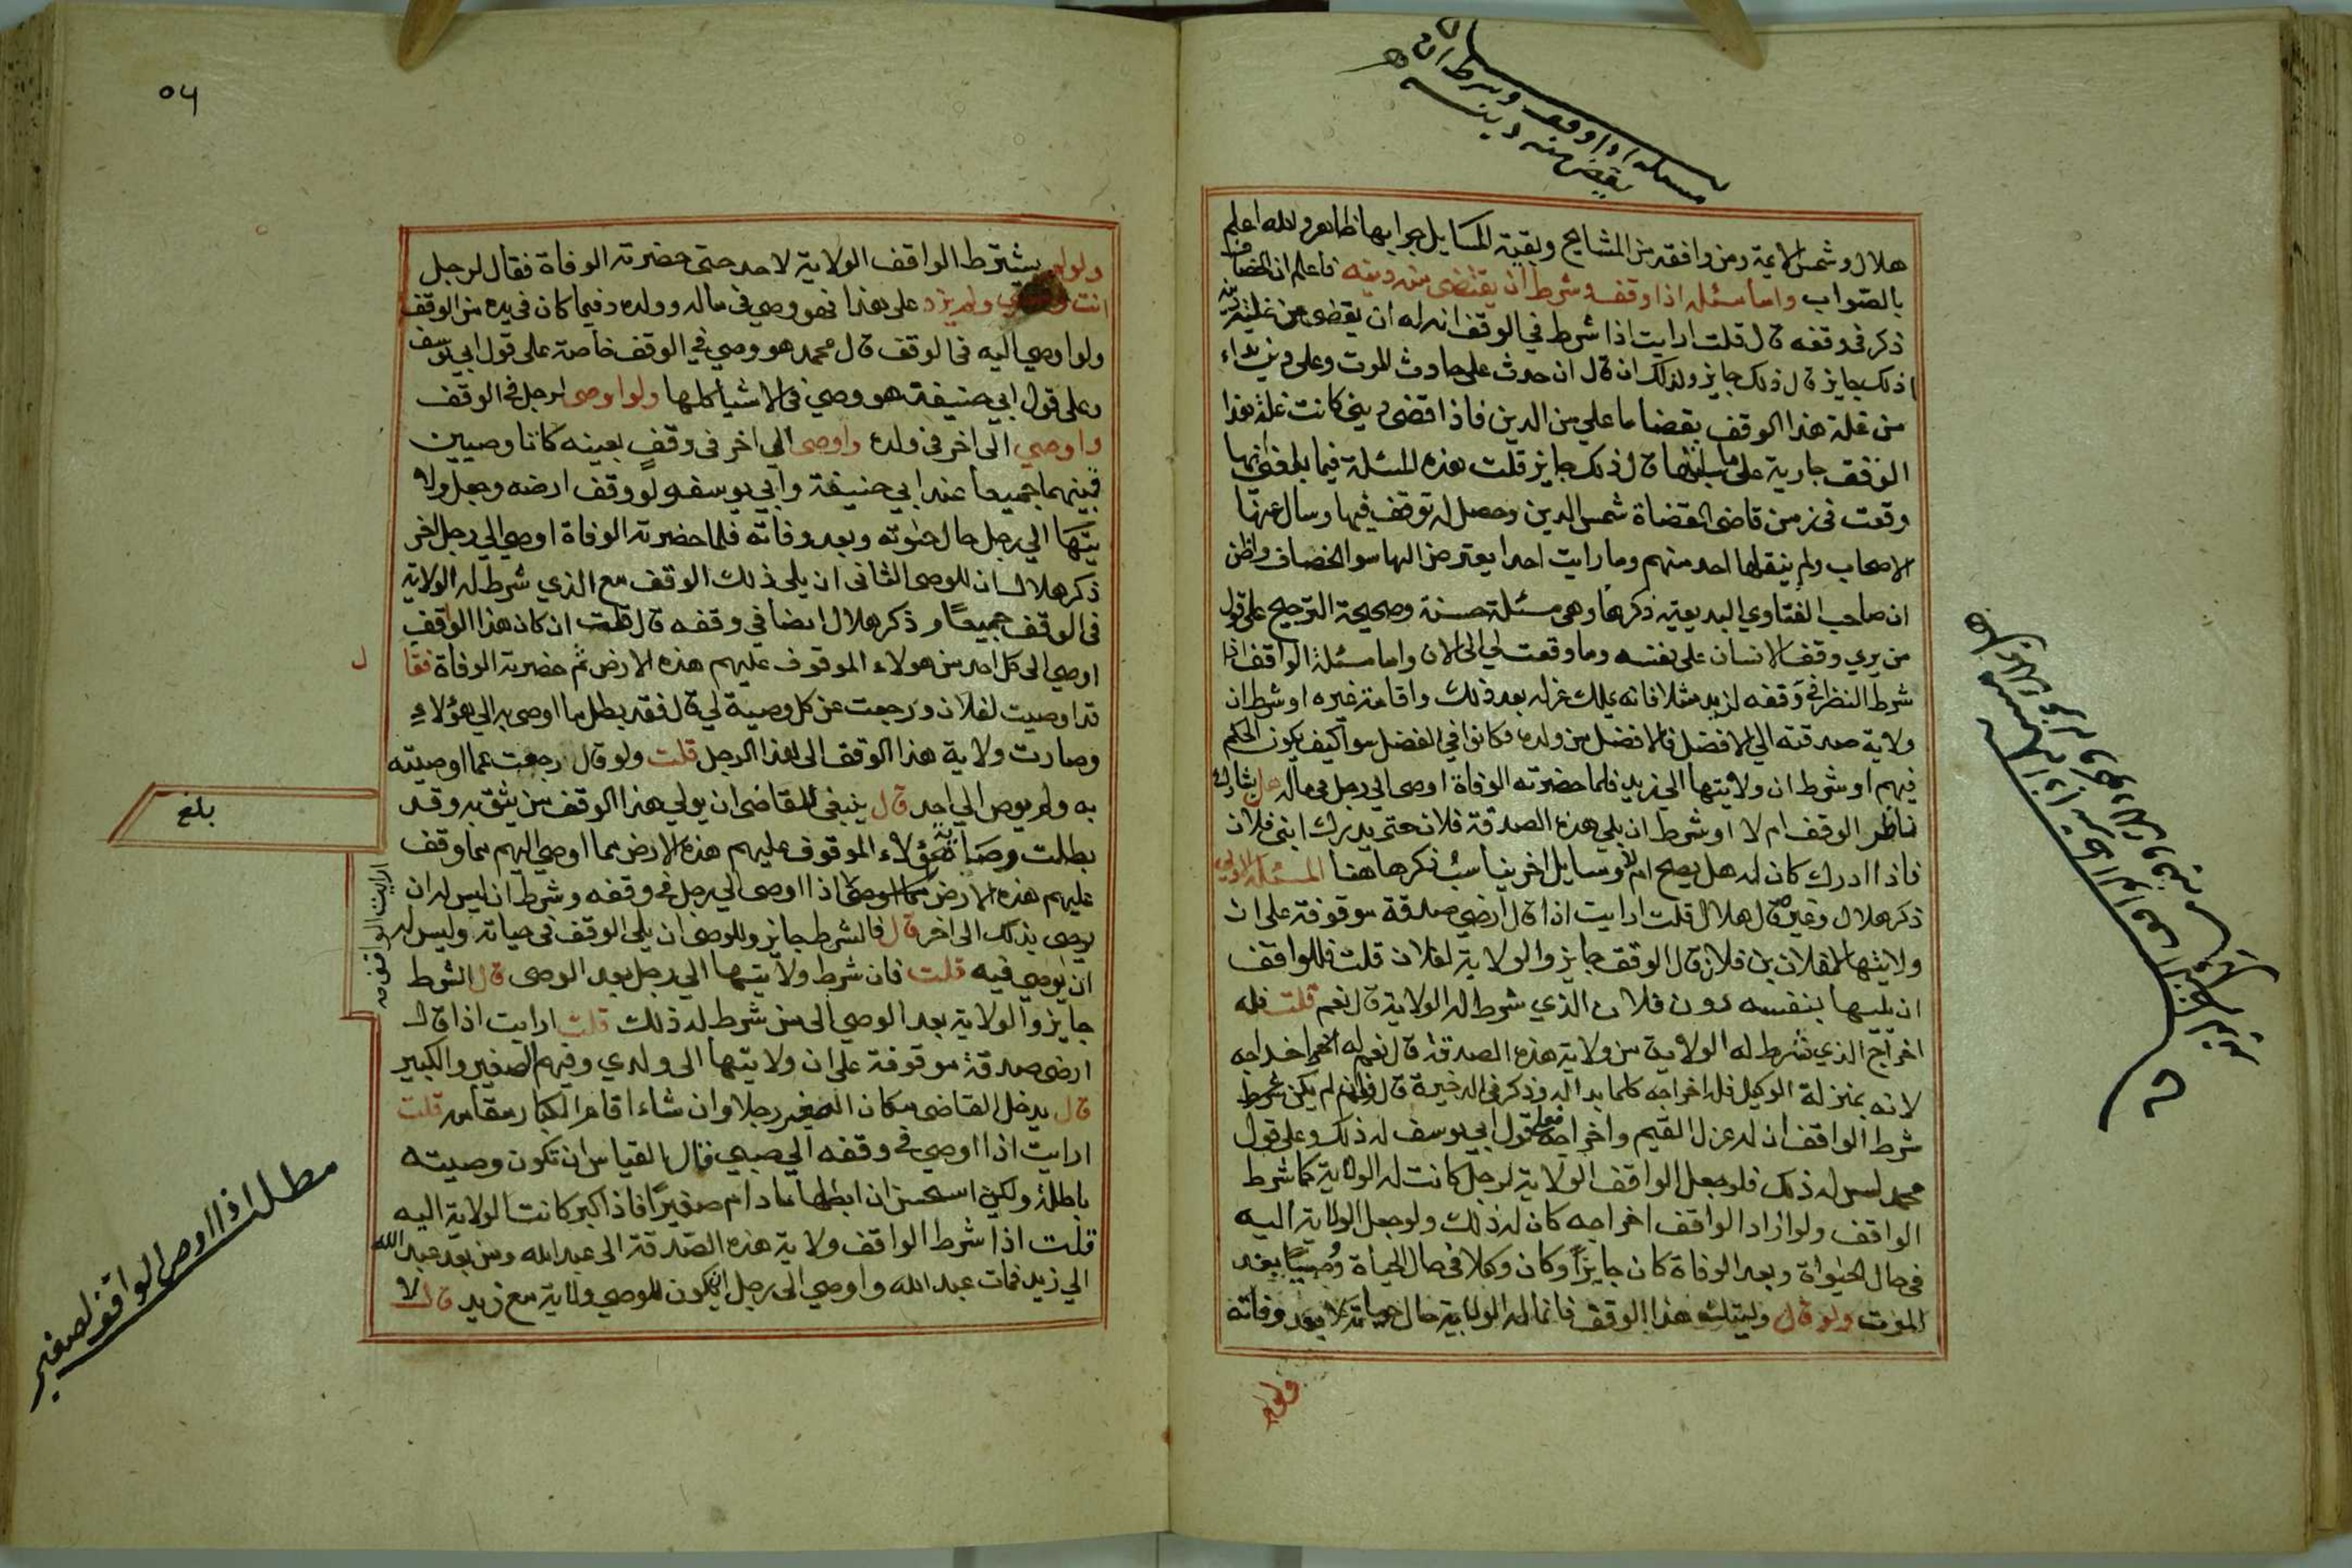 مسئله اذا وقف وشرط ان
يقضي منه دينه
هلال وشمس الايمة ومن وافقه من المشايخ وبقية المسايل جوابها ظاهر والله اعلم
بالصواب واما مسئلة اذا وقف وشرط ان يقتضى منه دينه فاعلم ان الخصاف
ذكر في وقفه قال قلت ارايت اذا شرط في الوقف انه له ان يقضى من غلته دينه
اذلك جايز قال ذلك جايز وكذلك ان قال ان حدث علي حادث الموت وعلي دين بداء
من غلة هذا الوقف بقضا ما علي من الدين فاذا قضى ديني كانت غلة هذا
الوقف جارية على ما سبلتها قال ذلك جايز قلت هذه المسئلة فيما بلغني انها
وقعت في زمن قاضى القضاة شمس الدين وحصل له توقف فيها وسال عنها
الاصحاب ولم ينقلها احد منهم وما رايت احدا يعترض الها سوا الخصاف واظن
ان صاحب الفتاوي البديعية ذكرها وهي مسئلة حسنة وصحيحة الترجيح على قول
من يري وقف الانسان على نفسه وما وقعت لي الى الان واما مسئلة الواقف اذا
شرط النظر في وقفه لزيد مثلا فانه يملك عزله بعد ذلك واقامة غيره او شرط ان
ولاية صدقته الي الافضل فالافضل من ولده فكانوا في الفضل سوا كيف يكون الحكم
فيهم او شرط ان ولايتها الى زيد فلما حضرته الوفاة اوصى الى رجل في ماله هل يشارك
ناظر الوقف ام لا او شرط ان يلي هذه الصدقة فلان حتى يدرك ابني فلان
فاذا ادرك كان له هل يصح ام لا ومسايل اخر يناسب ذكرها هنا المسئلة الاولي
ذكر هلال وغيره قال هلال قلت ارايت اذا قال ارضي صدقة موقوفة على ان
ولايتها لفلان بن فلان قال الوقف جايز والولاية لفلان قلت فللواقف
ان يليها بنفسه دون فلان الذي شرط له الولاية قال نعم قلت فله
اخراج الذي شرط له الولاية من ولاية هذه الصدقة قال نعم له اخراجه
لانه بمنزلة الوكيل فله اخراجه كلما بدا له وذكر في الدخيرة قال فان لم يكن شرط
شرط الواقف ان له عزل القيم واخراجه فعلى قول ابي يوسف له ذلك وعلى قول
محمد ليس له ذلك فلو جعل الواقف الولاية لرجل كانت له الولاية كما شرط
الواقف ولو اراد الواقف اخراجه كان له ذلك ولو جعل الولاية اليه
في حال الحيواة وبعد الوفاة كان جايزا وكان وكلا في حال الحياة وصيا بعد
الموت ولو قال وليتك هذا الوقف فانما له الولاية حال حياته لا بعد وفاته
ولو لم
٥٦
ولو لم يشترط الواقف الولاية لاحد حتى حضرته الوفاة فقال لرجل
انت وصيي ولم يزد على هذا فهو وصي في ماله وولده وفيما كان في يده من الوقف
ولو اوصي اليه في الوقف قال محمد هو وصي في الوقف خاصة على قول ابي يوسف
وعلى قول ابي حنيفة هو وصي في الاشيا كلها ولو اوصى لرجل في الوقف
واوصي الى اخر في ولده واوصى الي اخر في وقف بعينه كانا وصيين
فيهما جميعا عند ابي حنيفة وابي يوسف ولو وقف ارضه وجعل ولا
يتها الي رجل حال حيوته وبعد وفاته فلما حضرته الوفاة اوصي الي رجل اخر
ذكر هلال ان للوصى الثاني ان يلي ذلك الوقف مع الذي شرط له الولاية
في الوقف جميعا وذكر هلال ايضا في وقفه قال قلت ان كان هذا الواقف
اوصي الى كل احد من هولاء الموقوف عليهم هذه الارض ثم حضرته الوفاة فقا
ل
قد اوصيت لفلان ورجعت عن كل وصية لي قال فقد بطل ما اوصى به الي هؤلاء
وصارت ولاية هذا الوقف الى هذا الرجل قلت ولو قال رجعت عما اوصيته
به ولم يوص الي احد قال ينبغى للقاضى ان يولي هذا الوقف من يثق به وقد
بلغ
بطلت وصاية هؤلاء الموقوف عليهم هذه الارض مما اوصي اليهم مما وقف
عليهم هذه الارض ارايت الواقف اذا اوصى الي رجل في وقفه وشرط ان ليس له ان
يوصى بذلك الى اخر قال فالشرط جايز وللوصى ان يلى الوقف في حياته وليس له
ان يوصي فيه قلت فان شرط ولايتها الي رجل بعد الوصى قال الشرط
جايز والولاية بعد الوصي الى من شرط له ذلك قلت ارايت اذا قال
ارضى صدقة موقوفة على ان ولايتها الى ولدي وفيهم الصغير والكبير
قال يدخل القاضى مكان الصغير رجلا وان شاء اقام الكبار مقامه قلت
ارايت اذا اوصي في وقفه الي صبي قال القياس ان تكون وصيته
باطلة ولكن استحسن ان ابطلها ما دام صغيرا فاذا كبر كانت الولاية اليه
قلت اذا شرط الواقف ولاية هذه الصدقة الى عبد الله ومن بعد عبد الله
الي زيد فمات عبد الله واوصي الى رجل ايكون للوصي ولاية مع زيد قال لا
مطلب اذا اوصى الواقف لصغير